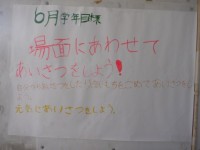 6月学年目標
場面にあわせて
あいさつをしよう!
元気にあいさつをしよう。